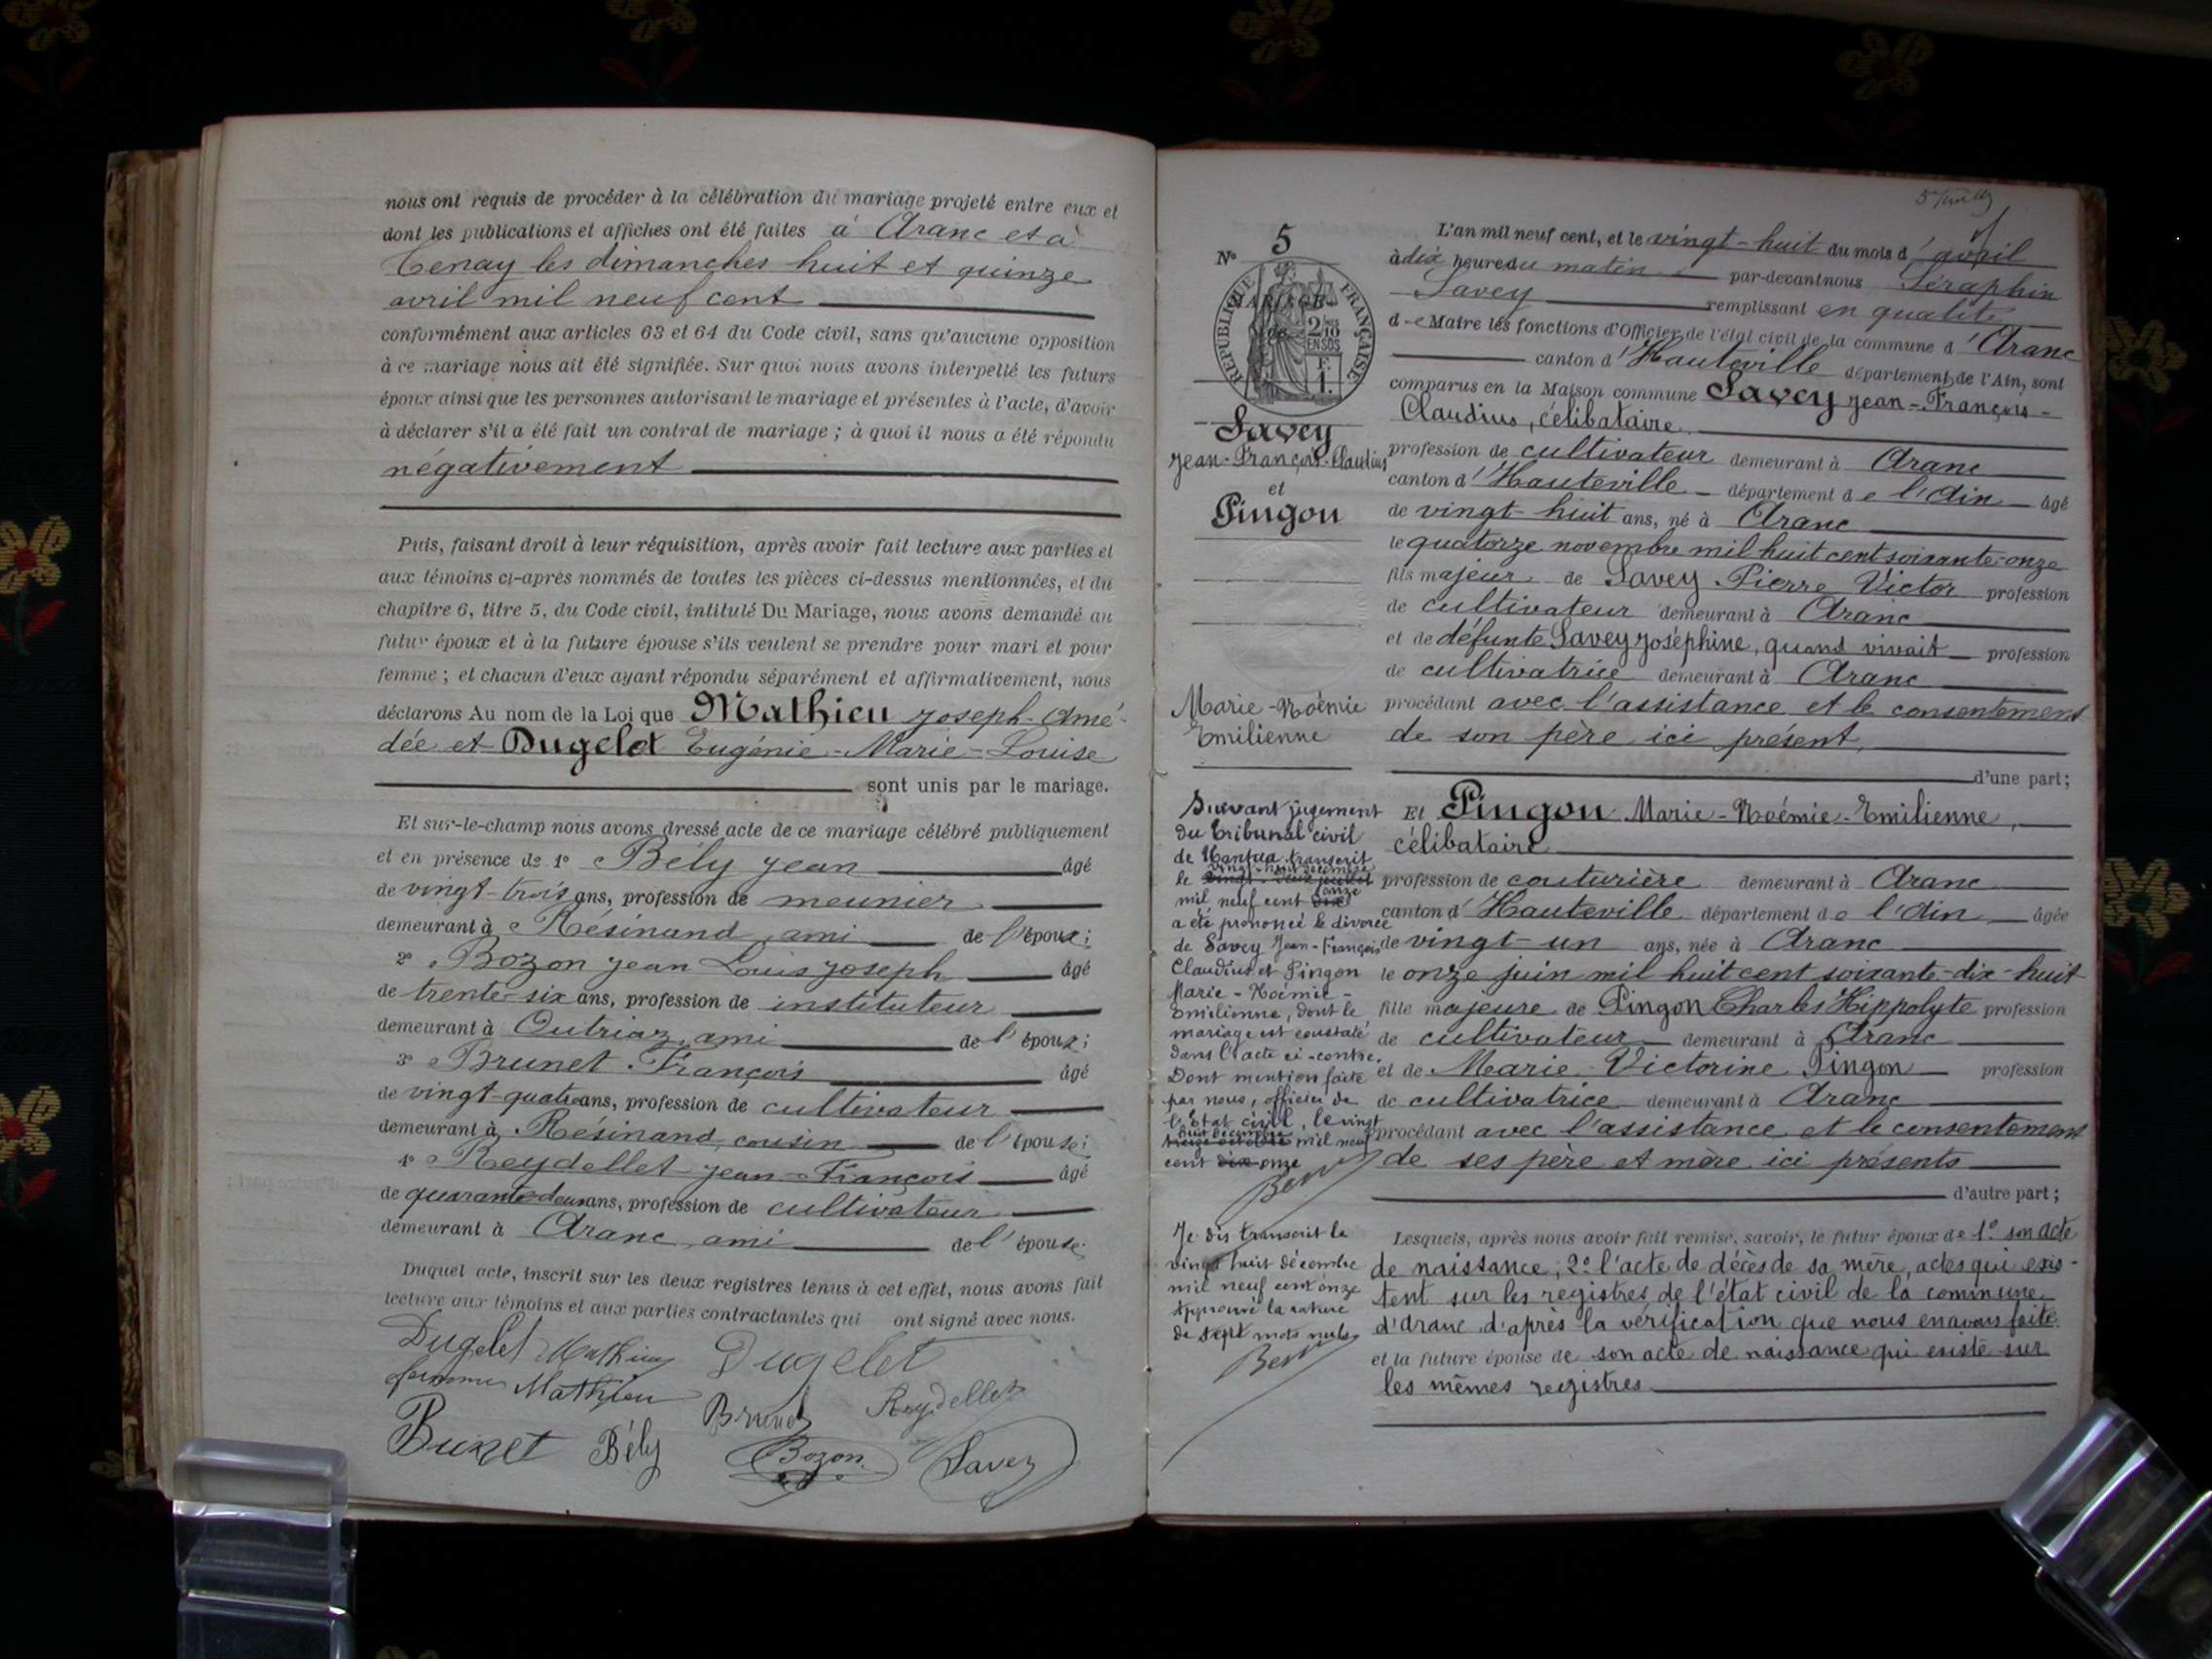 nous ont requis de procéder à la célébration du mariage projeté entre eux et
dont les publications et affiches ont été faites à Aranc et à
Tenay les dimanches huit et quinze
avril mil neuf cent
conformément aux articles 63 et 64 du Code civil, sans qu'aucune opposition
à ce mariage nous ait été signifiée. Sur quoi nous avons interpellé les futurs
époux ainsi que les personnes autorisant le mariage et présentes à l'acte, d'avoir
à déclarer s'il a été fait un contrat de mariage ; à quoi il nous a été répondu
négativement
Puis, faisant droit à leur réquisition, après avoir fait lecture aux parties et
aux témoins ci-après nommés de toutes les pièces ci-dessus mentionnées, et du
chapitre 6, titre 5, du Code civil, intitulé Du Mariage, nous avons demandé au
futur époux et à la future épouse s'ils veulent se prendre pour mari et pour
femme ; et chacun d'eux ayant répondu séparément et affirmativement, nous
déclarons Au nom de la Loi que Mathieu Joseph-Amé-
dée et Dugelet Eugénie-Marie-Louise
sont unis par le mariage.
Et sur-le-champ nous avons dressé acte de ce mariage célébré publiquement
et en présence de 1° Bély Jean âgé
de vingt-trois ans, profession de meunier
demeurant à Résinand, ami de l'époux ;
2° Bozon Jean Louis Joseph âgé
de trente-six ans, profession de instituteur
demeurant à Outriaz, ami de l'époux ;
3° Brunet François âgé
de vingt-quatre ans, profession de cultivateur
demeurant à Résinand, cousin de l'épouse ;
4° Reydellet Jean-François âgé
de quarante-deux ans, profession de cultivateur
demeurant à Aranc, ami de l'épouse.
Duquel acte, inscrit sur les deux registres tenus à cet effet, nous avons fait
lecture aux témoins et aux parties contractantes qui ont signé avec nous.
Dugelet Mathieu Dugelet
femme Mathieu Reydellet
Brunet
Bély Bozon Savey
N° 5
RÉPUBLIQUE FRANÇAISE
2/10 EN SUS
Savey
Jean-François-Claudius
et
Pingon
Marie-Noémie
Emilienne
Suivant jugement
du Tribunal civil
de Nantua transcrit
vingt-huit décembre
le vingt-deux juillet
onze
mil neuf cent dix
a été prononcé le divorce
de Savey Jean-François
Claudius et Pingon
Marie-Noémie-
Emilienne, dont le
mariage est constaté
dans l'acte ci-contre.
Dont mention faite
par nous, officier de
l'Etat civil, le vingt
huit décembre
mil neuf
cent dix onze
Je dis transcrit le
vingt huit décembre
mil neuf cent onze
Approuvé la rature
de sept mots nuls
L'an mil neuf cent, et le vingt-huit du mois d'avril
à dix heure du matin par-devant nous Séraphin
Savey remplissant en qualité
de Maire les fonctions d'Officier de l'état civil de la commune d'Aranc
canton d'Hauteville département de l'Ain, sont
comparus en la Maison commune Savey Jean-François-
Claudius, célibataire
profession de cultivateur demeurant à Aranc
canton d'Hauteville département de l'Ain âgé
de vingt-huit ans, né à Aranc
le quatorze novembre mil huit cent soixante-onze
fils majeur de Savey Pierre Victor profession
de cultivateur demeurant à Aranc
et de défunte Savey Joséphine, quand vivait profession
de cultivatrice demeurant à Aranc
procédant avec l'assistance et le consentement
de son père ici présent,
d'une part ;
Et Pingon Marie-Noémie-Emilienne,
célibataire
profession de couturière demeurant à Aranc
canton d'Hauteville département de l'Ain âgée
de vingt-un ans, née à Aranc
le onze juin mil huit cent soixante-dix-huit
fille majeure de Pingon Charles Hippolyte profession
de cultivateur demeurant à Aranc
et de Marie Victorine Pingon profession
de cultivatrice demeurant à Aranc
procédant avec l'assistance et le consentement
de ses père et mère ici présents
d'autre part ;
Lesquels, après nous avoir fait remise, savoir, le futur époux de 1° son acte
de naissance ; 2° l'acte de décès de sa mère, actes qui exis-
tent sur les registres de l'état civil de la commune
d'Aranc d'après la vérification que nous en avons faite.
et la future épouse de son acte de naissance qui existe sur
les mêmes registres.